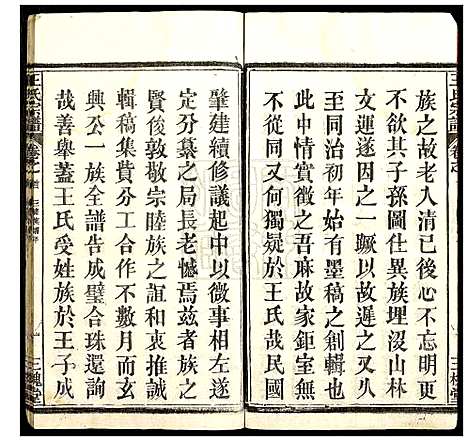 族之故老入清已後心不忘明更
不欲其子孫圖仕異族埋沒山林
文不運用以故遲之一蹶以故遲之又久
至同治初年始有墨稿之創輯也
此中情實徵之吾麻故家鉅室無
不從同又何獨疑於王氏哉民國
肇建續修議起中以微事相左遂
定分纂之局長老憾焉茲者族之
賢俊敦敬宗睦族之誼和衷共
輯稿集貲分工合作不數月而成
興公一族全譜告成璧合珠還詢
哉善舉蓋王氏受姓族於王子成
王氏宗譜
三槐堂
三槐堂